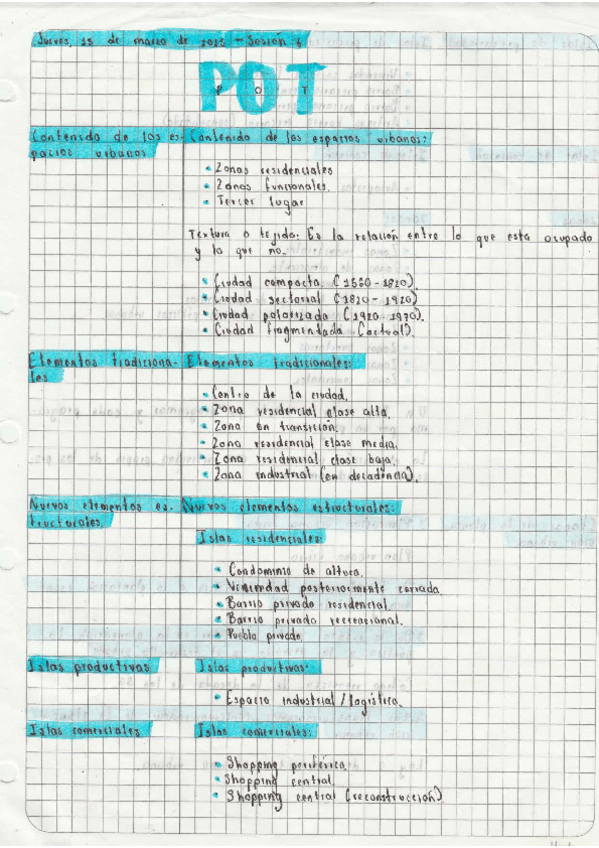 Jueves, 15 de marzo de 2023 - Sesión 6
POT
P O T
Contenido de los es- Contenido de los espacios urbanos:
pacios urbanos
• Zonas residenciales
• Zonas funcionales.
• Tercer lugar
Textura o tejido: Es la relación entre lo que esta ocupado
y lo que no.
• Ciudad compacta (1550 - 1820).
• Ciudad sectorial (1820 - 1920)
• Ciudad polarizada (1920 - 1970).
• Ciudad fragmentada (actual).
Elementos tradiciona- Elementos tradicionales:
les
• Centro de la ciudad.
• Zona residencial clase alta.
• Zona en transición.
• Zona residencial clase media.
• Zona residencial clase baja.
• Zona industrial (en decadencia).
Nuevos elementos es- Nuevos elementos estructurales:
tructurales.
Islas residenciales:
• Condominio de altura.
• Vecindad posteriormente cerrada
• Barrio privado residencial.
• Barrio privado recreacional.
• Pueblo privado.
Islas productivas Islas productivas:
• Espacio industrial / logístico.
Islas comerciales Islas comerciales:
• Shopping periférico.
• Shopping central.
• Shopping central (reconstrucción)